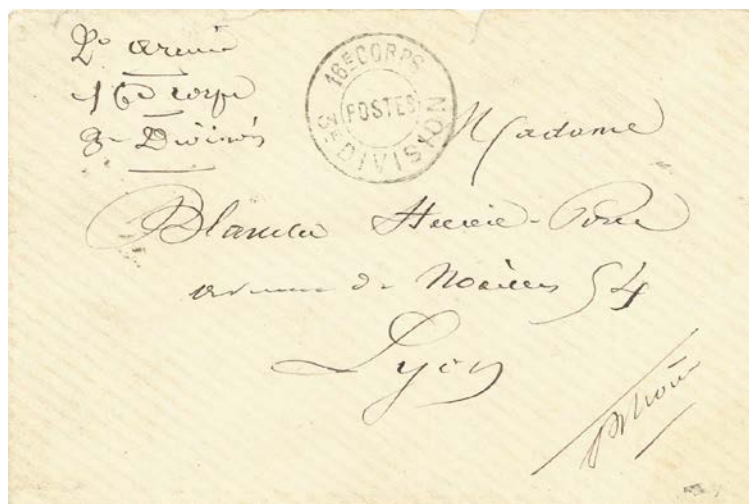 2e armée
16e corps
3e Division
16E CORPS
POSTES
3E DIVISION
Madame
Blanche
avenue de Noailles 54
Lyon